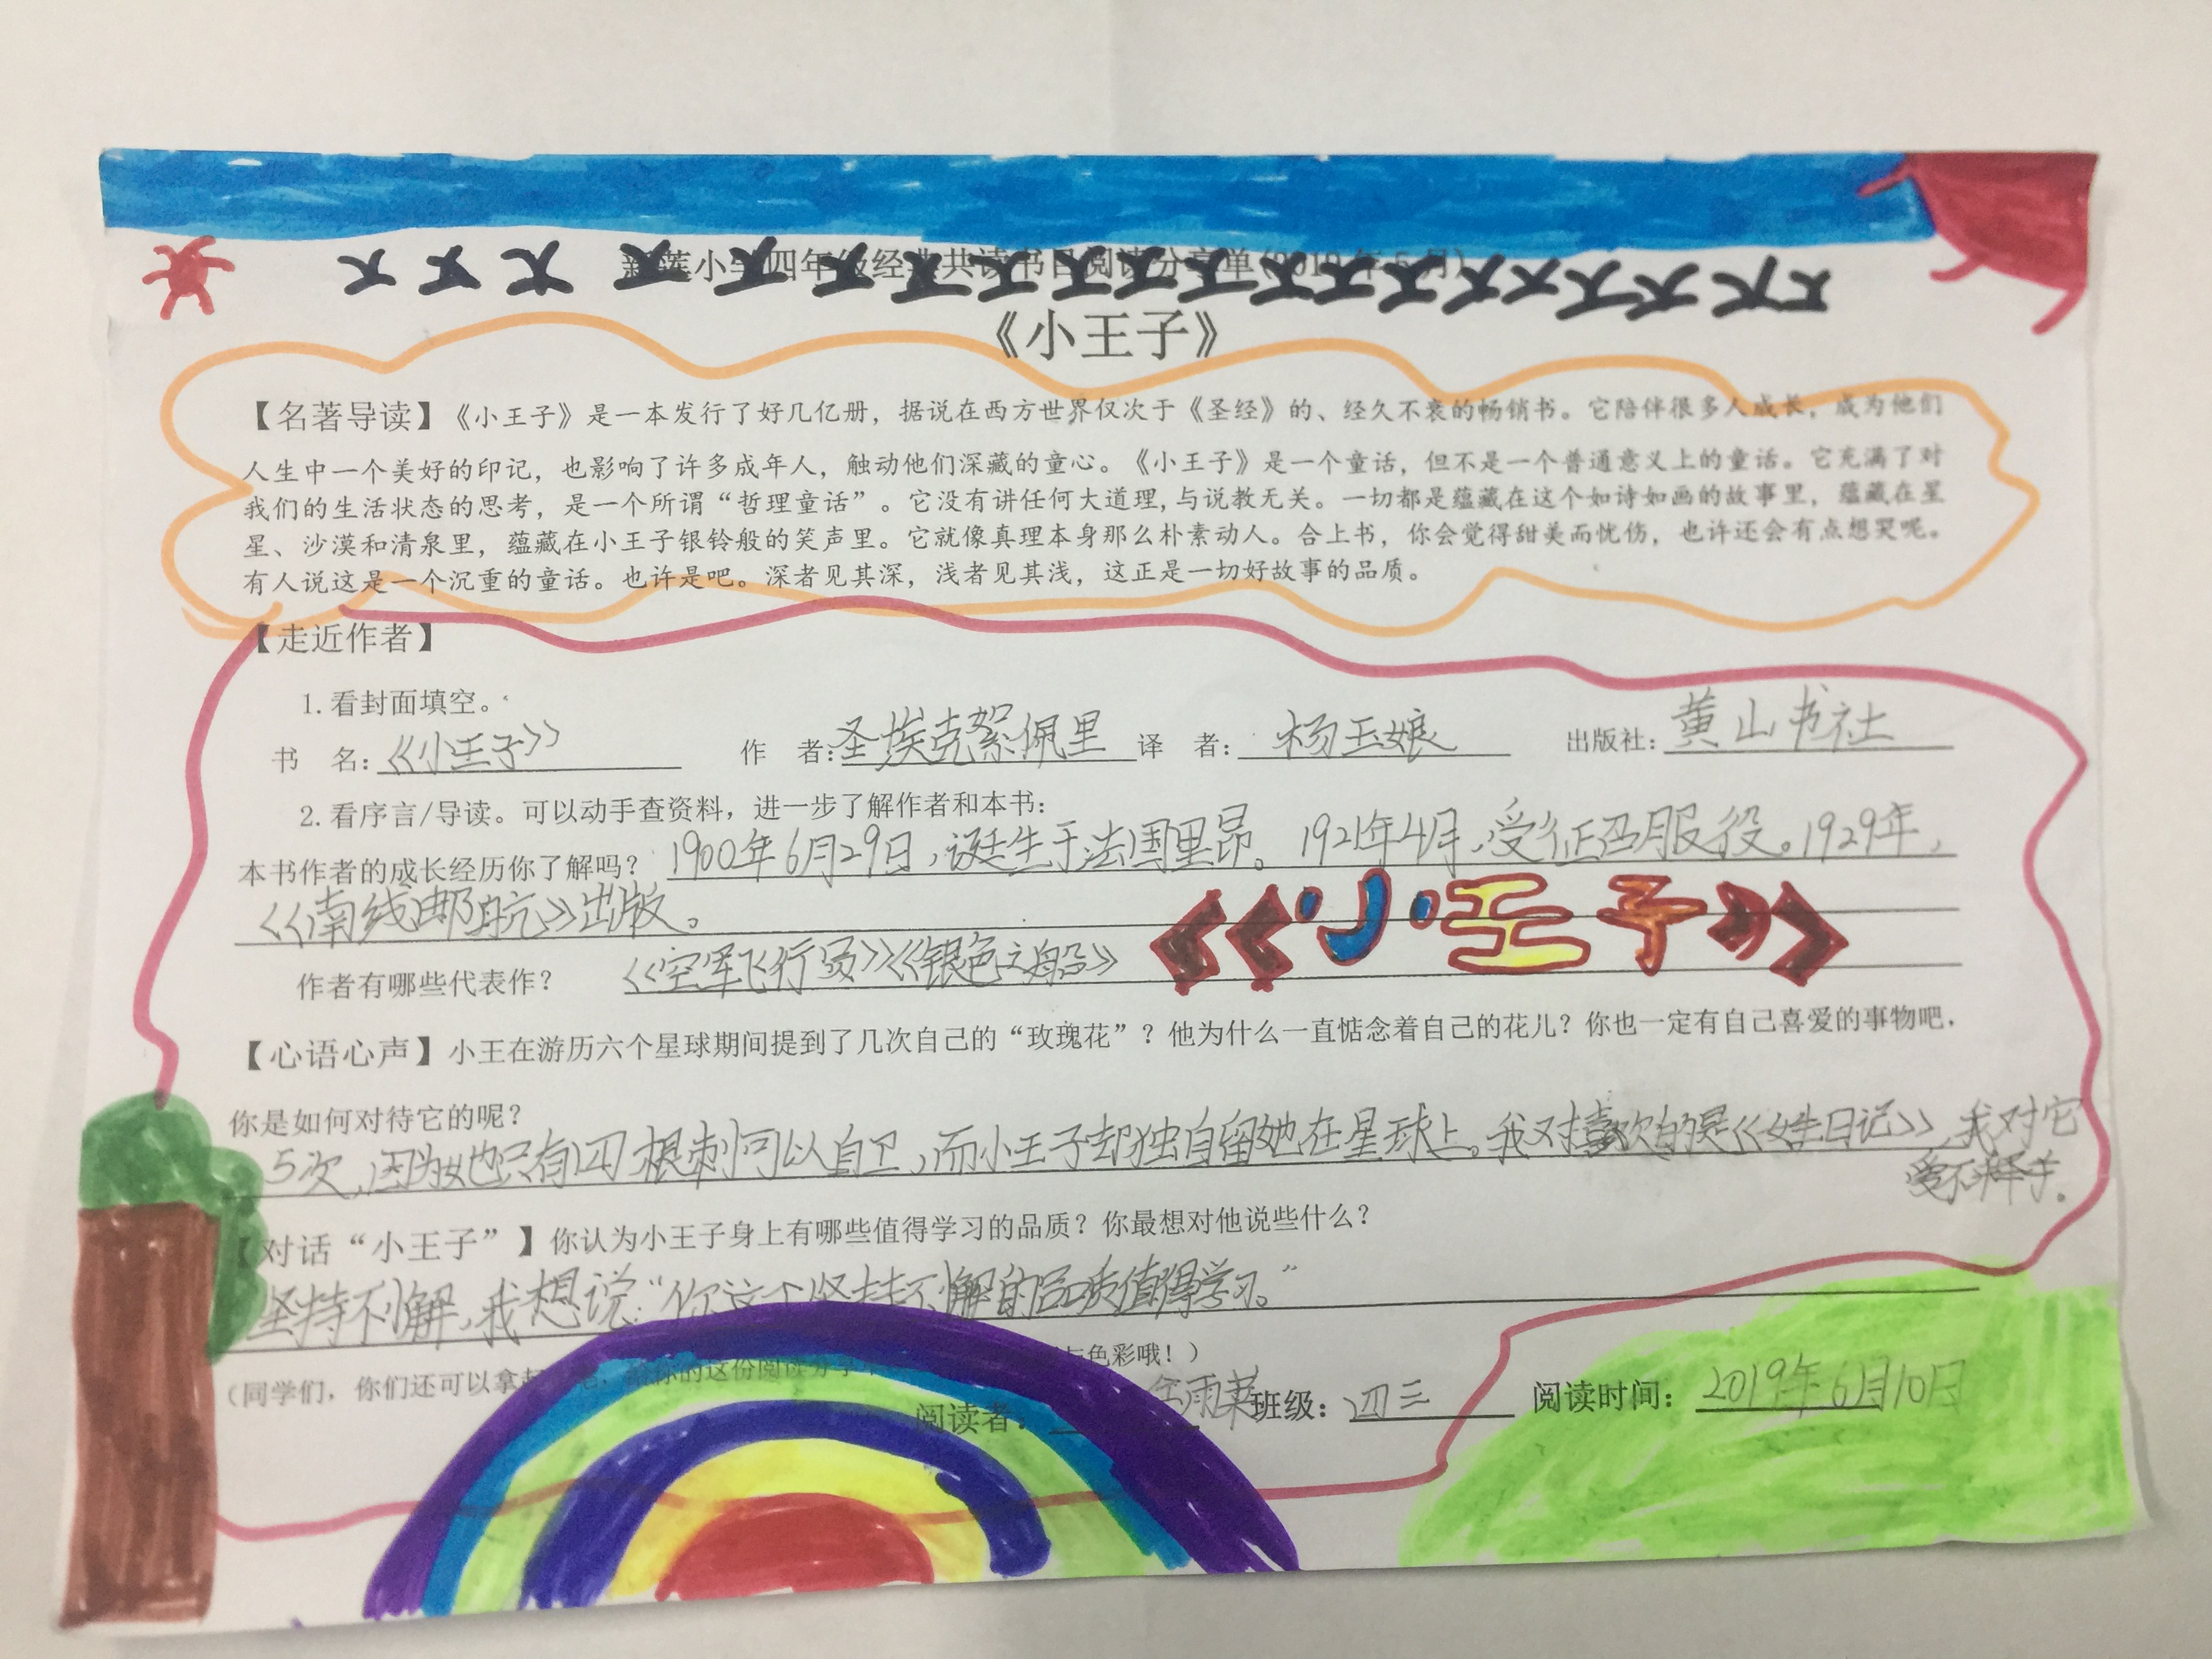 小学四年级经典共读书目阅读分享单(2019年5月)
《小王子》
【名著导读】《小王子》是一本发行了好几亿册，据说在西方世界仅次于《圣经》的、经久不衰的畅销书。它陪伴很多人成长，成为他们
人生中一个美好的印记，也影响了许多成年人，触动他们深藏的童心。《小王子》是一个童话，但不是一个普通意义上的童话。它充满了对
我们的生活状态的思考，是一个所谓“哲理童话”。它没有讲任何大道理,与说教无关。一切都是蕴藏在这个如诗如画的故事里，蕴藏在星
星、沙漠和清泉里，蕴藏在小王子银铃般的笑声里。它就像真理本身那么朴素动人。合上书，你会觉得甜美而忧伤，也许还会有点想哭呢。
有人说这是一个沉重的童话。也许是吧。深者见其深，浅者见其浅，这正是一切好故事的品质。
【走近作者】
1.看封面填空。
书 名:《小王子》 作 者:圣埃克絮佩里 译 者: 杨玉娘 出版社: 黄山书社
2.看序言/导读。可以动手查资料，进一步了解作者和本书:
本书作者的成长经历你了解吗? 1900年6月29日,诞生于法国里昂。1921年4月,受征召服役。1929年,
《南线邮航》出版。
《小王子》
作者有哪些代表作? 《空军飞行员》《银色之船》
【心语心声】小王在游历六个星球期间提到了几次自己的“玫瑰花”?他为什么一直惦念着自己的花儿?你也一定有自己喜爱的事物吧，
你是如何对待它的呢?
5次,因为她只有四根刺可以自卫,而小王子却独自留她在星球上。我对喜欢的是《女生日记》,我对它
爱不释手。
【对话“小王子”】你认为小王子身上有哪些值得学习的品质?你最想对他说些什么?
坚持不懈,我想说:“你这个坚持不懈的品质值得学习。”
(同学们，你们还可以拿起 给你的这份阅读分享单 色彩哦!)
阅读者: 雨 班级: 四三 阅读时间: 2019年6月10日